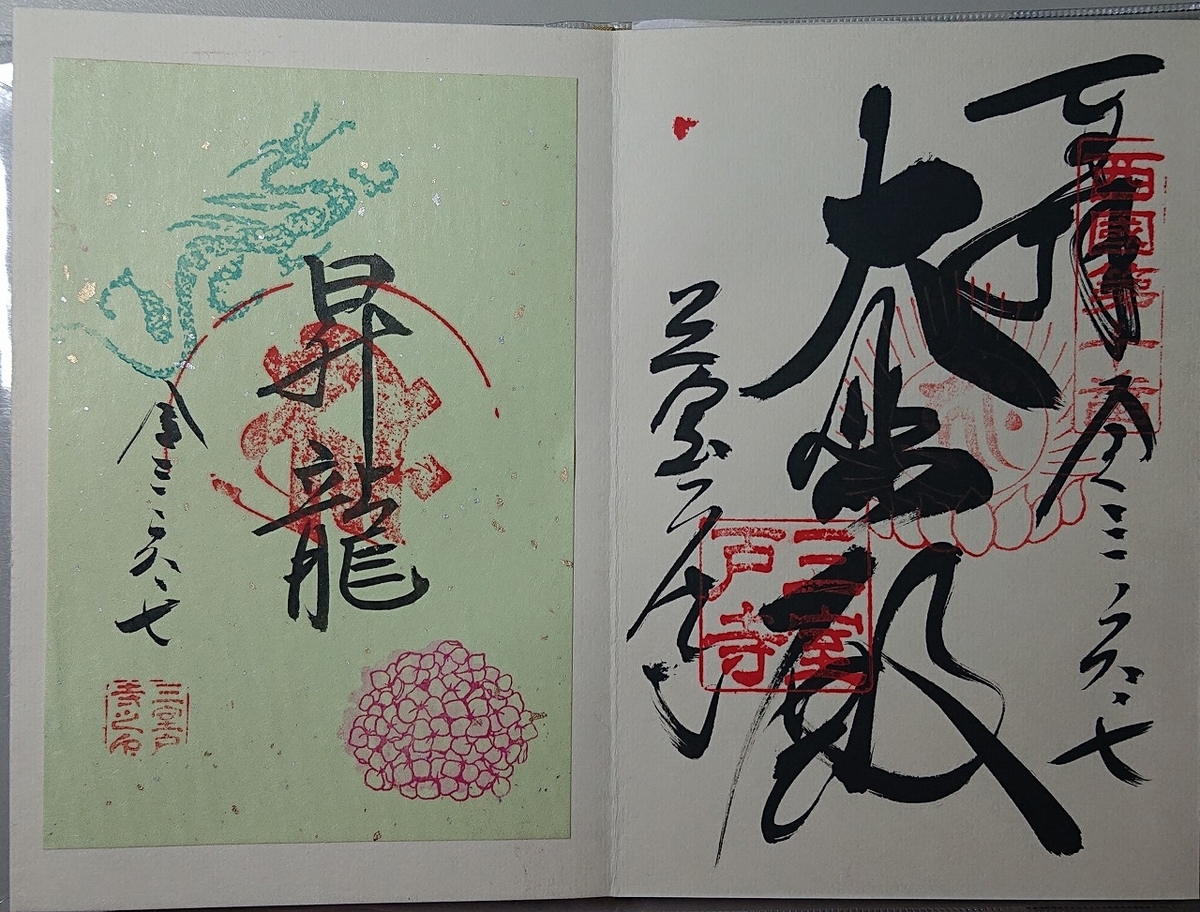 奉拝
西國第十番
令三・六・七
大悲殿
三室戸寺
三室戸寺
昇龍
令三・六・七
三室戸
寺之印